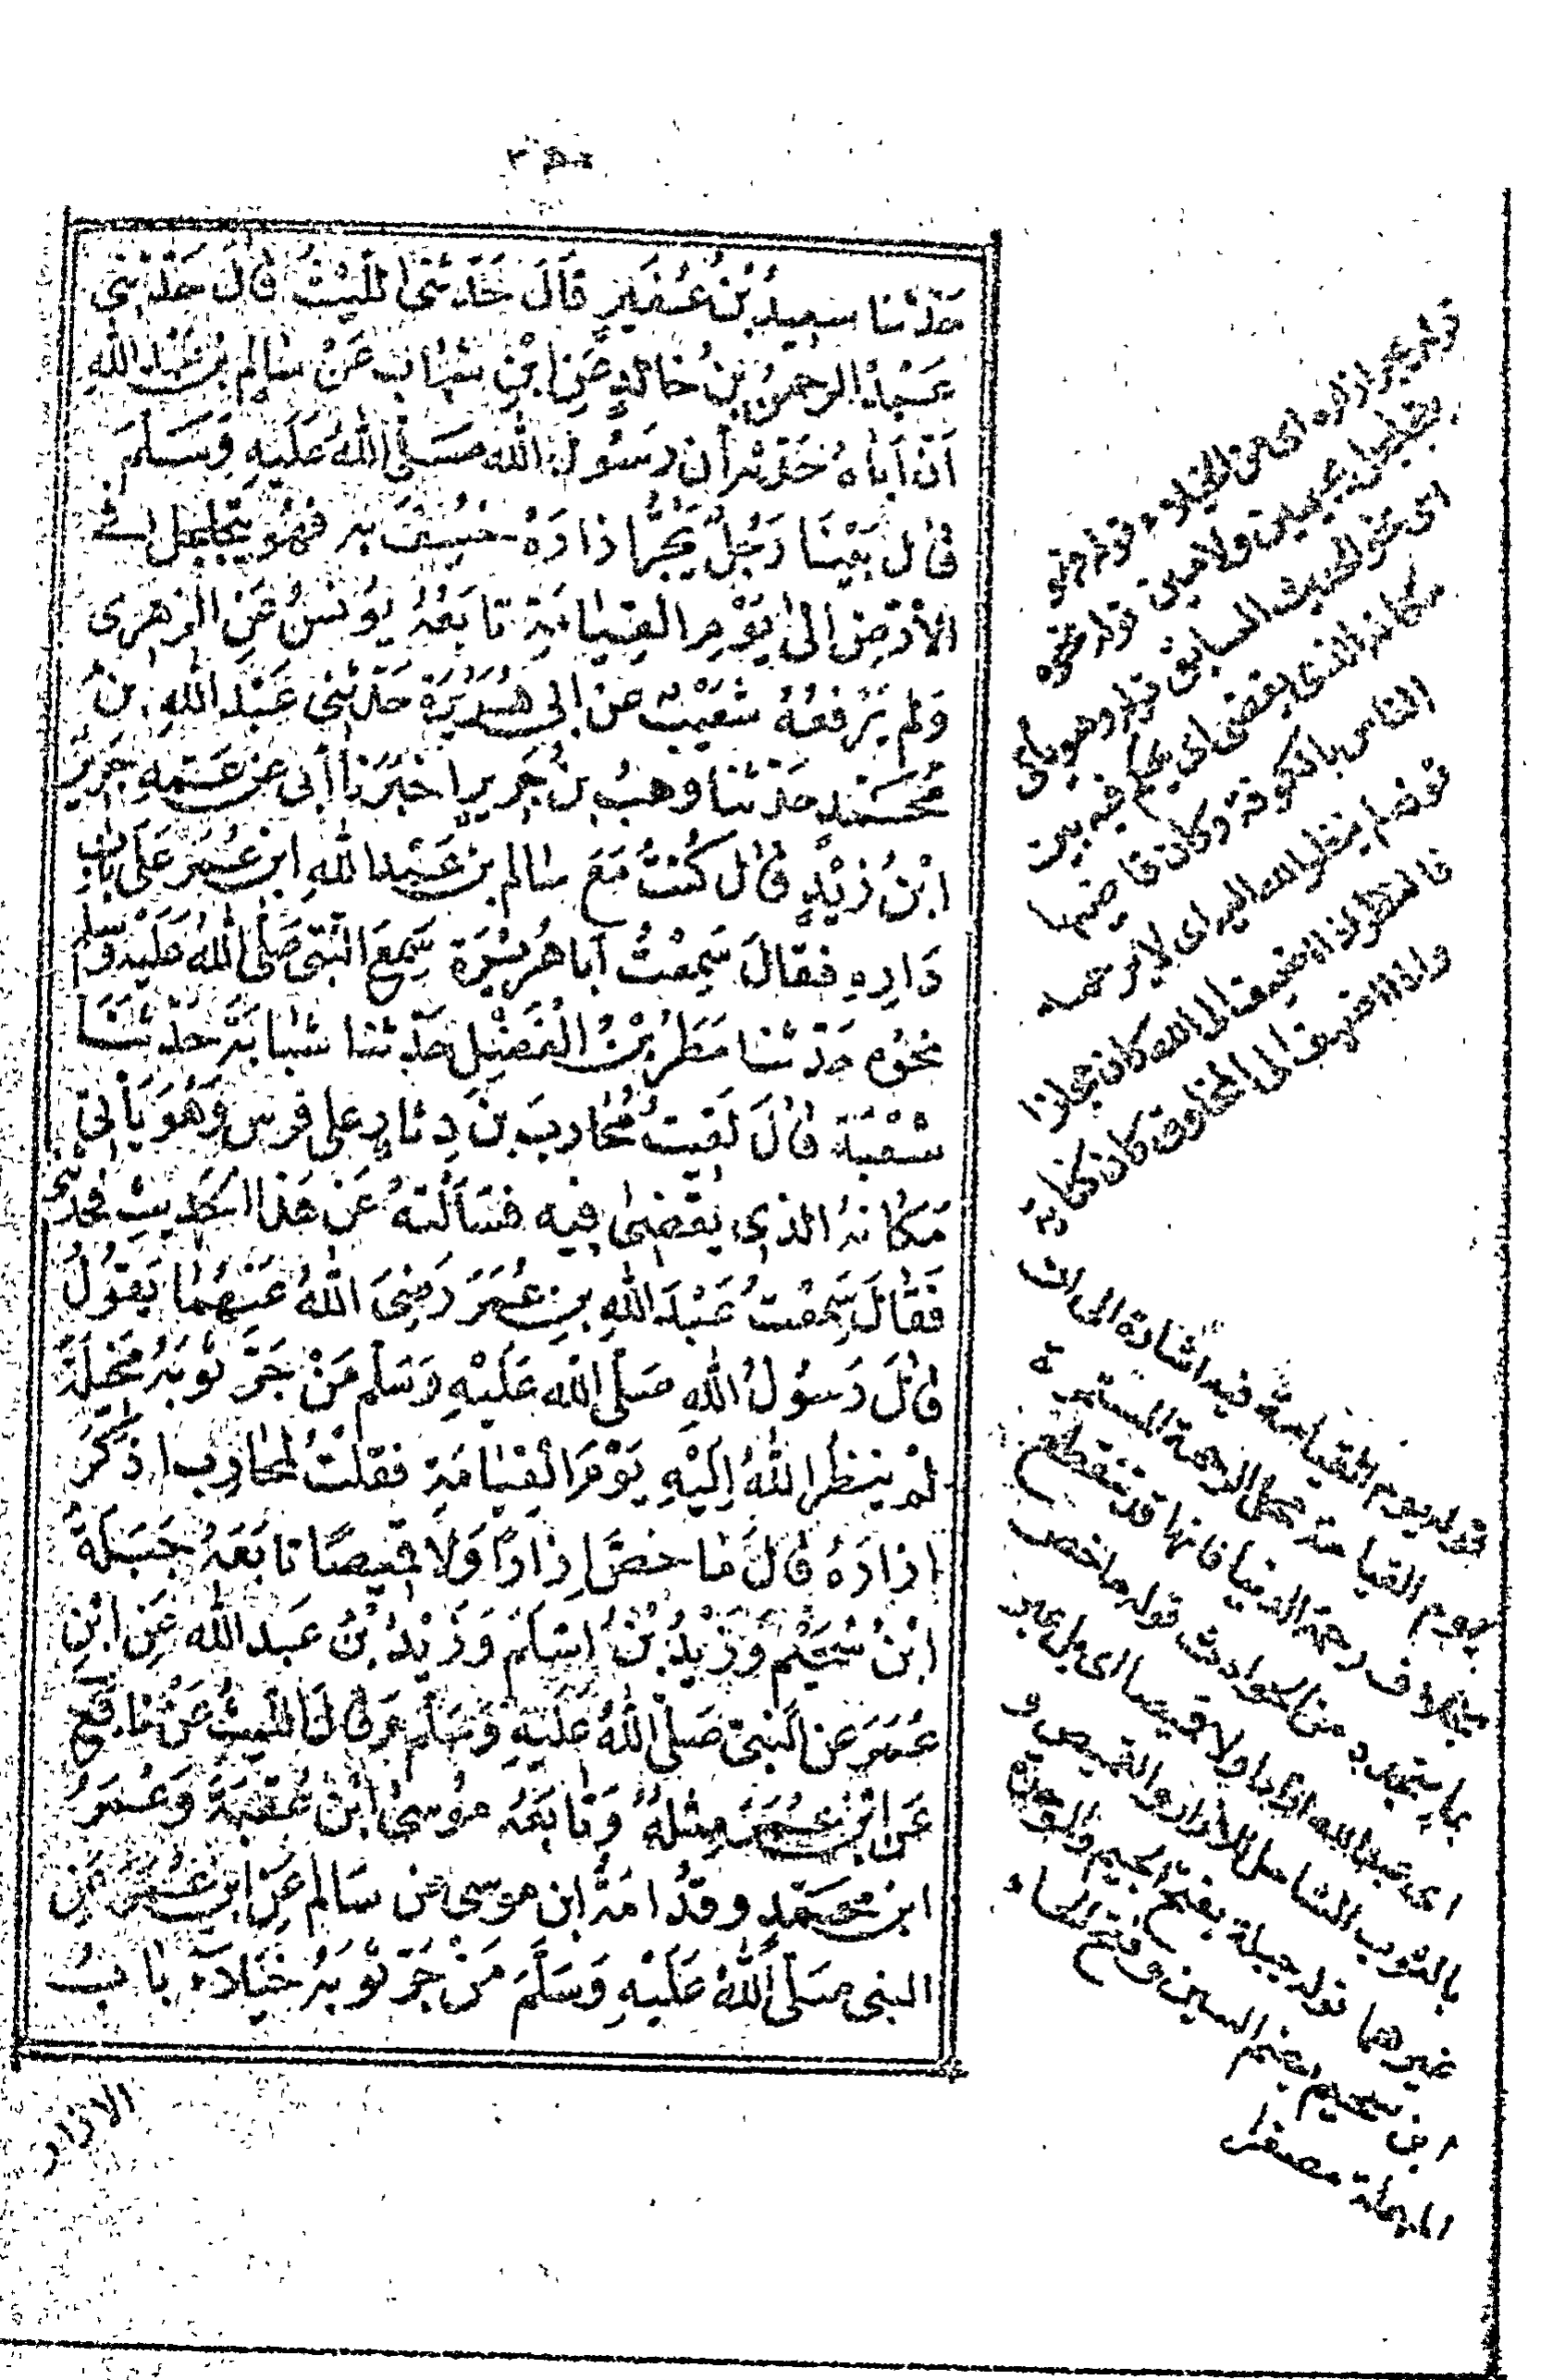 حَدَّثَنَا سَعِيدُ بْنُ عُفَيْرٍ قَالَ حَدَّثَنِى اللَّيْثُ قَالَ حَدَّثَنِى
عَبْدُ الرحمٰنِ بنُ خَالِدٍ عَنِ ابْنِ شِهَابٍ عَنْ سَالِمِ بنِ عَبْدِ اللهِ
اَنَّ اَبَاهُ حَدَّثَهُ أن رَسُولَ اللهِ صَلَّى اللهُ عَلَيْهِ وَسَلَّمَ
قَالَ بَيْنَا رَجُلٌ يَجُرُّ اِزَارَهُ خُسِفَ بِهِ فَهُوَ يَتَجَلْجَلُ فى
الأَرْضِ اِلىٰ يَوْمِ القِيَامَةِ تَابَعَهُ يُونُسُ عَنِ الزُّهرِى
وَلم يَرْفَعْهُ شُعَيْبٌ عن ابى هُرَيْرَة حَدَّثَنِى عَبْدُ اللهِ بنُ
مُحَمَّدٍ حَدَّثَنَا وهبُ بنُ جَرِيرٍ اخبَرَنَا أبى عن عَمِّهِ جَرِيرِ
ابْنُ زَيْدٍ قَالَ كُنتُ مَعَ سَالِم بنِ عَبْدِ اللهِ ابنِ عُمَرَ عَلَى بَابِ
دَارِهِ فَقَالَ سَمِعْتُ اَبَا هُرَيْرَة سَمِعَ النَّبِى صَلَّى اللهُ عَلَيْهِ وَسلم
نَحْوَه حَدَّثَنَا مَطَرُ بْنُ الْفَضْلِ حَدَّثَنَا شَبَابَةُ حَدَّثَنَا
شُعْبَة قَالَ لَقِيتُ مُحَارِبَ بنَ دِثَارٍ على فرس وَهُوَ يَأتى
مَكَانَهُ الذى يَقْضِىٰ فِيهِ فسَأَلْتهُ عَن هَذَا الحَدِيثِ فحدَّثنى
فَقَالَ سَمِعْتُ عَبْدَ اللهِ بنَ عُمَرَ رَضِىَ اللهُ عَنْهُمَا يَقُولُ
قَالَ رَسُولُ اللهِ صَلَّى اللهُ عَلَيْهِ وَسَلَّم مَنْ جَرَّ ثَوْبَهُ مَخِيلَةً
لمْ ينظُرِ اللهُ إِلَيْهِ يَوْمَ القِيَامَةِ فقلتُ لمحَارِبٍ اَذَكَرَ
اِزَارَهُ قَالَ مَا خصَّ اِزَارًا وَلَا قَمِيصًا تَابَعَهُ جَبَلَةُ
ابْنُ سُحَيْمٍ وَزَيْدُ بْنُ اَسْلَمَ وَزَيْدُ بْنُ عَبدِ الله عَنِ ابْنِ
عُمَرَ عن النَّبِىِّ صَلَّى اللهُ عَلَيْهِ وَسَلَّمَ وَقَالَ اللَّيثُ عَنْ نَافِعٍ
عَن ابْنِ عُمَرَ مِثْلَهُ وَتَابَعَهُ مُوسىٰ ابْنُ عُقْبَةَ وَعُمَرُ
ابنُ مُحَمَّدٍ وقدُامَةُ ابن موسى عن سَالمٍ عَنِ ابنِ عُمَرَ عَنِ
النبى صَلَّى اللهُ عَلَيْهِ وَسَلَّمَ مَنْ جَرَّ ثَوْبَهُ خُيَلَاءَ بَابُ
الازار
قوله يجر ازاره اى من الخيلاء قوله
يتجلجل بجيمين ولامين قوله نحوه
اى نحو الحديث السابق قوله وهو يأتى
مكانه الذى يقضى اى يحكم فيه بين
الناس بالكوفة وكان قاضيها
قوله لم ينظر الله اليه اى لا يرحمه
فالنظر اذا اضيف الى الله كان مجازا
واذا اضيف الى المخلوق كان كناية
قوله يوم القيامة فيه اشارة الى ان
يوم القيامة محل الرحمة المستمرة
بخلاف رحمة الدنيا فانها قد تنقطع
بما يتجدد من الحوادث قوله ما خص
اى عبد الله ازارا ولا قميصا اى بل عبر
بالثوب الشامل للأزار والقميص و
غيرهما قوله جبلة بفتح الجيم والموحدة
ابن سحيم بضم السين وفتح الحاء
المهملة مصغرا